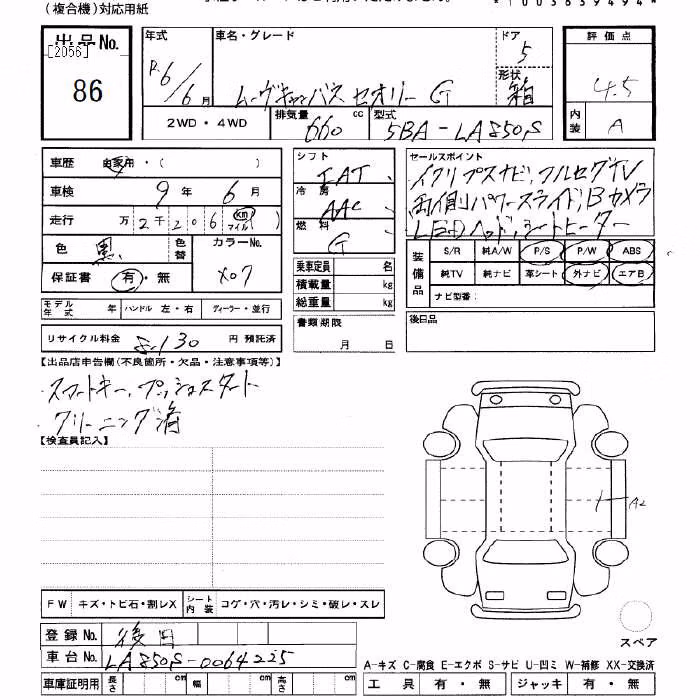 (複合機)対応用紙
*1003639494*
出品No.
[2056]
86
年式
R6/6月
車名・グレード
ムーヴキャンバス セオリー G
ドア
5
形状
箱
評価点
4.5
内装
A
2WD・4WD
排気量
660 cc
型式
5BA-LA850S
車歴 自家用・( )
車検 9年 6月
走行 万2千206 km マイル
色 黒 色替 カラーNo. X07
保証書 有・無
シフト
IAT
冷房
AAC
燃料
G
セールスポイント
イクリプスナビ,フルセグTV
両側パワースライド,Bカメラ
LEDヘッド,シートヒーター
装備品
S/R 純A/W P/S P/W ABS
純TV 純ナビ 革シート 外ナビ エアB
ナビ型番:
乗車定員 名
積載量 kg
総重量 kg
モデル年式 年 ハンドル 左・右 ディーラー・並行
書類期限
月 日
後日品
リサイクル料金 8,130 円 預託済
【出品店申告欄(不良箇所・欠品・注意事項等)】
・スマートキー,プッシュスタート
・クリーニング済
【検査員記入】
A2
FW キズ・トビ石・割レX シート内装 コゲ・穴・汚レ・シミ・破レ・スレ
スペア
登録No. 後日
車台No. LA850S-0064225
A-キズ C-腐食 E-エクボ S-サビ U-凹ミ W-補修 XX-交換済
車庫証明用 長さ cm 幅 cm 高さ cm
工具 有・無 ジャッキ 有・無